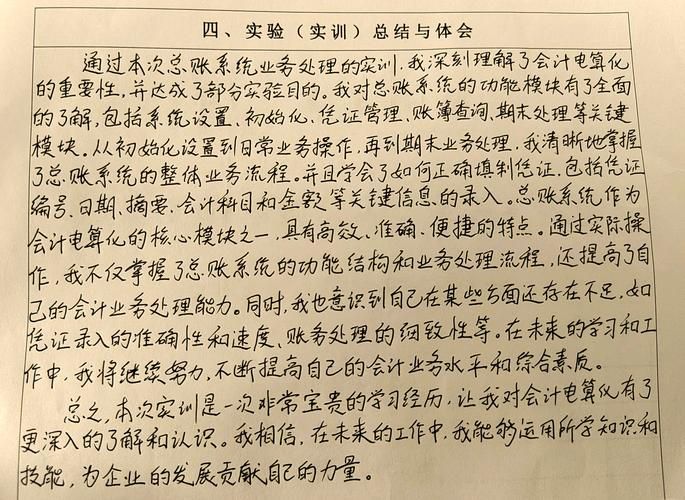 四、实验（实训）总结与体会
通过本次总账系统业务处理的实训,我深刻理解了会计电算化
的重要性,并达成了部分实验目的。我对总账系统的功能模块有了全面
的了解,包括系统设置、初始化、凭证管理、账簿查询、期末处理等关键
模块。从初始化设置到日常业务操作,再到期末业务处理,我清晰地掌握
了总账系统的整体业务流程。并且学会了如何正确填制凭证,包括凭证
编号、日期、摘要、会计科目和金额等关键信息的录入。总账系统作为
会计电算化的核心模块之一,具有高效、准确、便捷的特点。通过实际操
作,我不仅掌握了总账系统的功能结构和业务处理流程,还提高了自
己的会计业务处理能力。同时,我也意识到自己在某些方面还存在不足,如
凭证录入的准确性和速度、账务处理的细致性等。在未来的学习和工
作中,我将继续努力,不断提高自己的会计业务水平和综合素质。
总之,本次实训是一次非常宝贵的学习经历,让我对会计电算化有了
更深入的了解和认识。我相信,在未来的工作中,我能够运用所学知识和
技能,为企业的发展贡献自己的力量。